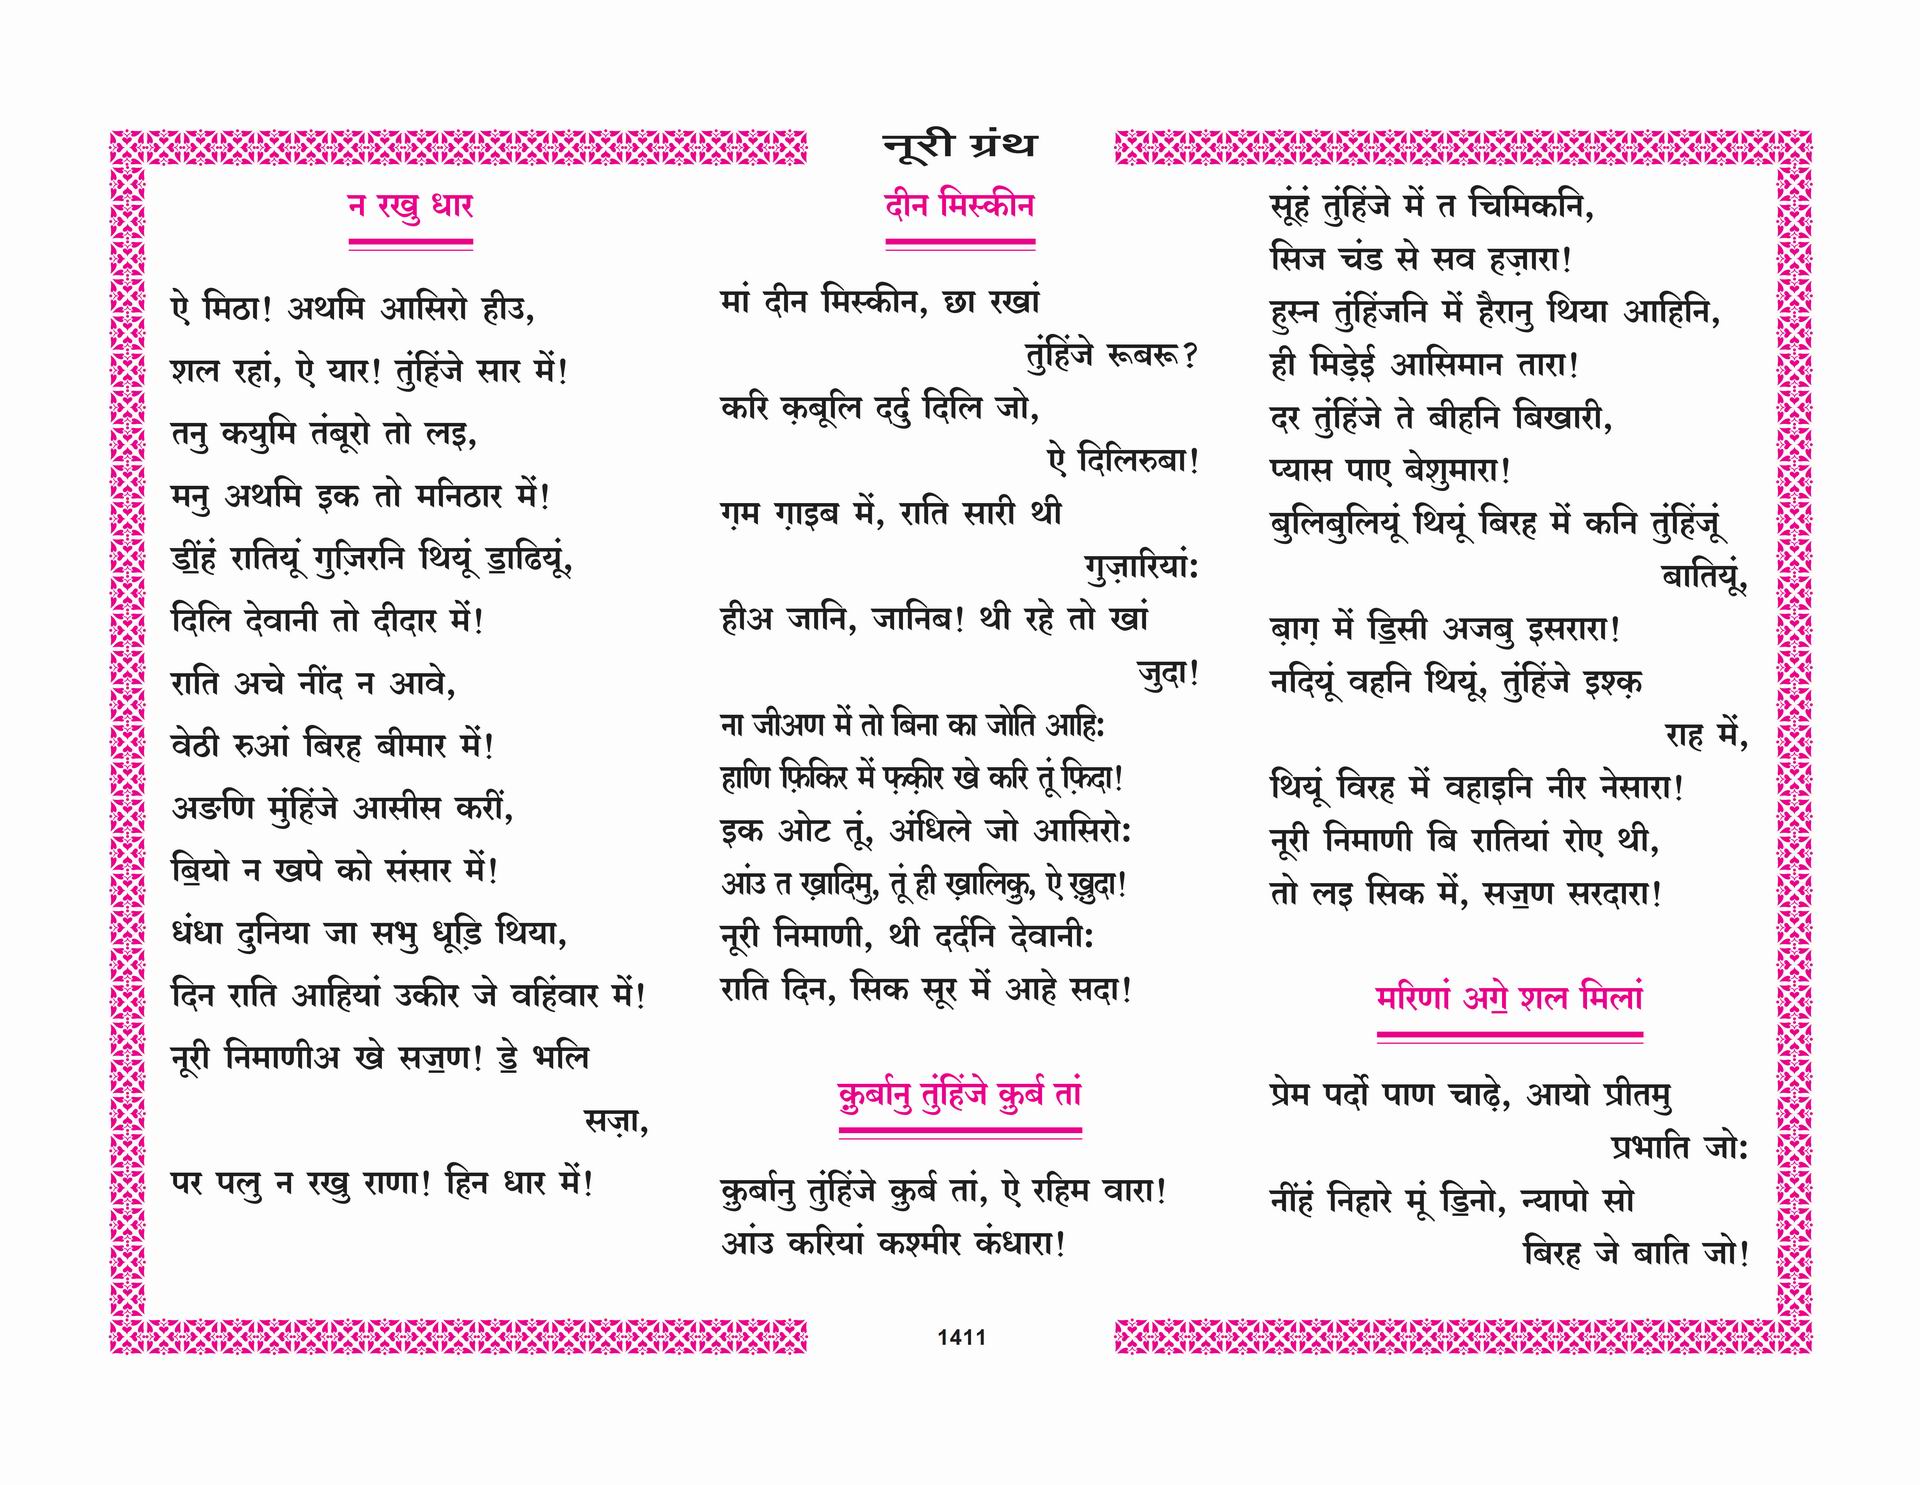 नूरी ग्रंथ
न रखु धार
ऐ मिठा! अथमि आसिरो हीउ,
शल रहां, ऐ यार! तुंहिंजे सार में!
तनु कयुमि तंबूरो तो लइ,
मनु अथमि इक तो मनिठार में!
ॾींहं रातियूं गुज़िरनि थियूं ॾाढियूं,
दिलि देवानी तो दीदार में!
राति अचे नींद न आवे,
वेठी रुआं बिरह बीमार में!
अङणि मुंहिंजे आसीस करीं,
ॿियो न खपे को संसार में!
धंधा दुनिया जा सभु धूड़ि थिया,
दिन राति आहियां उकीर जे वहिंवार में!
नूरी निमाणीअ खे सॼण! ॾे भलि
सज़ा,
पर पलु न रखु राणा! हिन धार में!
दीन मिस्कीन
मां दीन मिस्कीन, छा रखां
तुंहिंजे रूबरू?
करि क़बूलि दर्दु दिलि जो,
ऐ दिलिरुबा!
ग़म ग़ाइब में, राति सारी थी
गुज़ारियां:
हीअ जानि, जानिब! थी रहे तो खां
जुदा!
ना जीअण में तो बिना का जोति आहि:
हाणि फ़िकिर में फ़क़ीर खे करि तूं फ़िदा!
इक ओट तूं, अंधिले जो आसिरो:
आंउ त ख़ादिमु, तूं ही ख़ालिकु, ऐ ख़ुदा!
नूरी निमाणी, थी दर्दनि देवानी:
राति दिन, सिक सूर में आहे सदा!
क़ुर्बानु तुंहिंजे क़ुर्ब तां
क़ुर्बानु तुंहिंजे क़ुर्ब तां, ऐ रहिम वारा!
आंउ करियां कश्मीर कंधारा!
सूंहं तुंहिंजे में त चिमिकनि,
सिज चंड से सव हज़ारा!
हुस्न तुंहिंजनि में हैरानु थिया आहिनि,
ही मिड़ेई आसिमान तारा!
दर तुंहिंजे ते बीहनि बिखारी,
प्यास पाए बेशुमारा!
बुलिबुलियूं थियूं बिरह में कनि तुंहिंजूं
बातियूं,
ब़ाग़ में ॾिसी अजबु इसरारा!
नदियूं वहनि थियूं, तुंहिंजे इश्क़
राह में,
थियूं विरह में वहाइनि नीर नेसारा!
नूरी निमाणी बि रातियां रोए थी,
तो लइ सिक में, सॼण सरदारा!
मरिणां अॻे शल मिलां
प्रेम पर्दो पाण चाढ़े, आयो प्रीतमु
प्रभाति जो:
नींहं निहारे मूं ॾिनो, न्यापो सो
बिरह जे बाति जो!
1411